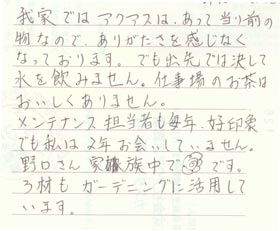 我家では アクアスは、あって当り前の
物なので、ありがたさを感じなく
なっております。でも出先では決して
水を飲みません。仕事場のお茶は
おいしくありません。
メンテナンス担当者も毎年、好印象
でも私は2年お会いしていません。
野口さん 家族中で です。
ろ材も ガーデニングに活用して
います。